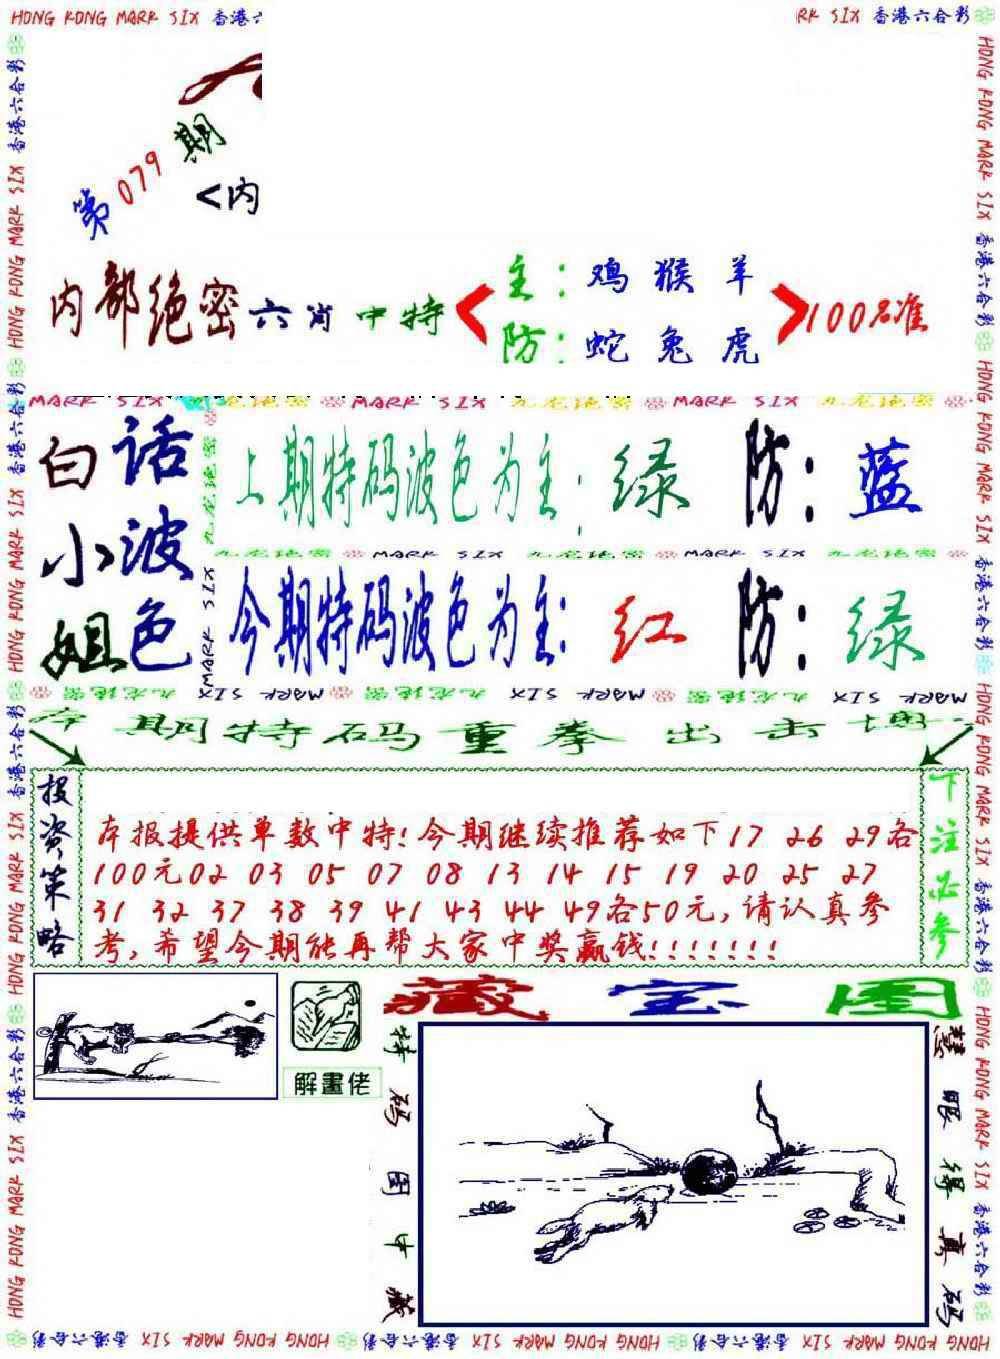 HONG KONG MARK SIX 香港
RK SIX 香港六合彩
第079期
<内
内部绝密六肖中特
主：鸡 猴 羊
防：蛇 兔 虎
100%准
MARK SIX 九龙绝密 MARK SIX 九龙绝密 MARK SIX 九龙绝密
白小姐
话波色
上期特码波色为主：绿 防：蓝
九龙绝密 MARK SIX 九龙绝密 MARK SIX 九龙绝密
今期特码波色为主：红 防：绿
九龙绝密 MARK SIX 九龙绝密 MARK SIX 九龙绝密 MARK SIX
本期特码重拳出击
投资策略
本报提供单数中特!今期继续推荐如下17 26 29各
100元02 03 05 07 08 13 14 15 19 20 25 27
31 32 37 38 39 41 43 44 49各50元,请认真参
考,希望今期能再帮大家中奖赢钱!!!!!!!
下注必参
解畫佬
藏宝图
特码图中藏
慧眼得真码
HONG KONG MARK SIX 香港六合彩 HONG KONG MARK SIX 香港六合彩 HONG KONG MARK SIX 香港六合彩